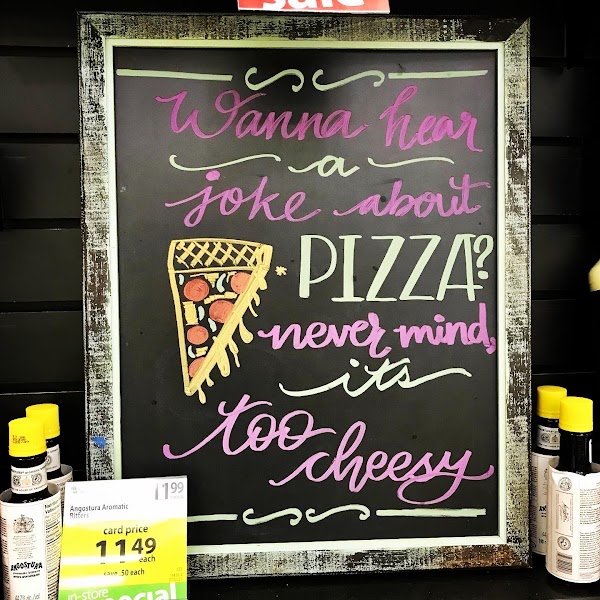 sale
Wanna hear
a
joke about
PIZZA?
never mind,
its
too
cheesy
11.99
Angostura Aromatic
Bitters
card price
11.49
each
save .50 each
in-store
special
ANGOSTURA